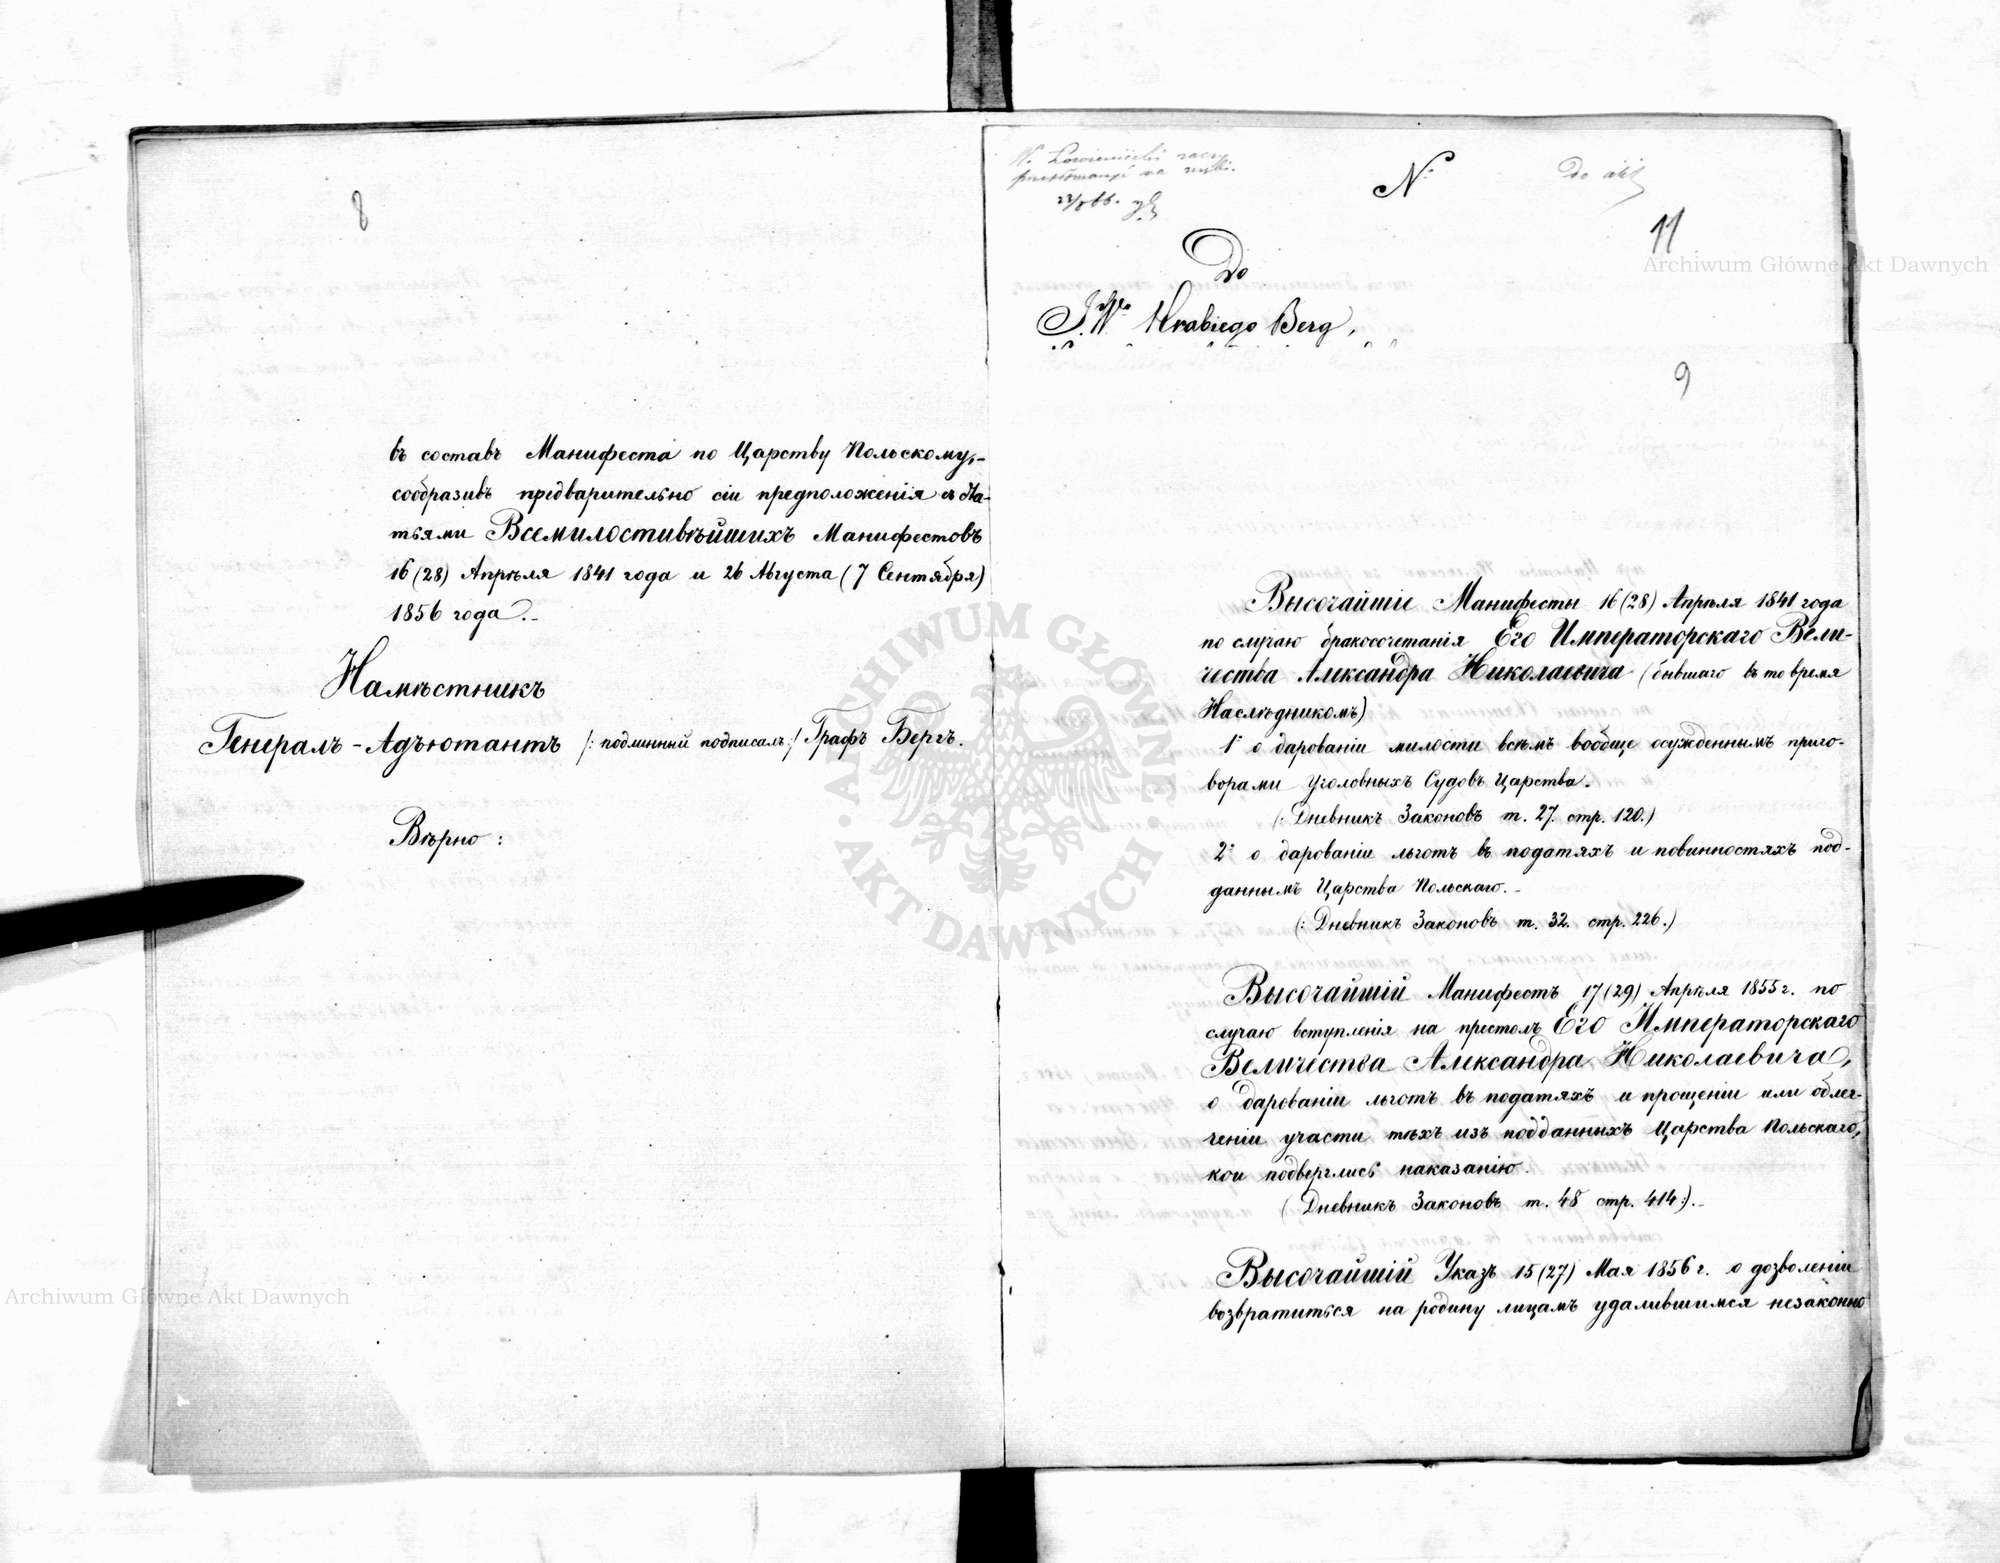 8
въ составъ Манифеста по Царству Польскому,-
сообразивъ предварительно сіи предположенія съ Ста-
тьями Всемилостивѣйшихъ Манифестовъ
16 (28) Апрѣля 1841 года и 26 Августа (7 Сентября)
1856 года.-
Намѣстникъ
Генералъ-Адъютантъ /: подлинный подписалъ:/ Графъ Бергъ.
Вѣрно:
№
Do akt
11
Do
J.W° Hrabiego Berg,
9
Высочайшіе Манифесты 16 (28) Апрѣля 1841 года
по случаю бракосочетанія Его Императорскаго Вели-
чества Александра Николаевича (бывшаго въ то время
Наслѣдникомъ)
1° о дарованіи милости всѣмъ вообще осужденнымъ приго-
ворами Уголовныхъ Судовъ Царства.
(: Дневникъ Законовъ т. 27. стр. 120.)
2° о дарованіи льготъ въ податяхъ и повинностяхъ под-
даннымъ Царства Польскаго.-
(: Дневникъ Законовъ т. 32. стр. 226.)
Высочайшій Манифестъ 17 (29) Апрѣля 1855 г. по
случаю вступленія на престолъ Его Императорскаго
Величества Александра Николаевича,
о дарованіи льготъ въ податяхъ и прощеніи или облег-
ченіи участи тѣхъ изъ подданныхъ Царства Польскаго,
кои подверглись наказанію.
( Дневникъ Законовъ т. 48 стр. 414:).-
Высочайшій Указъ 15 (27) Мая 1856 г. о дозволеніи
возвратиться на родину лицамъ удалившимся незаконно
Archiwum Główne Akt Dawnych
Archiwum Główne Akt Dawnych
ARCHIWUM GŁÓWNE · AKT DAWNYCH ·